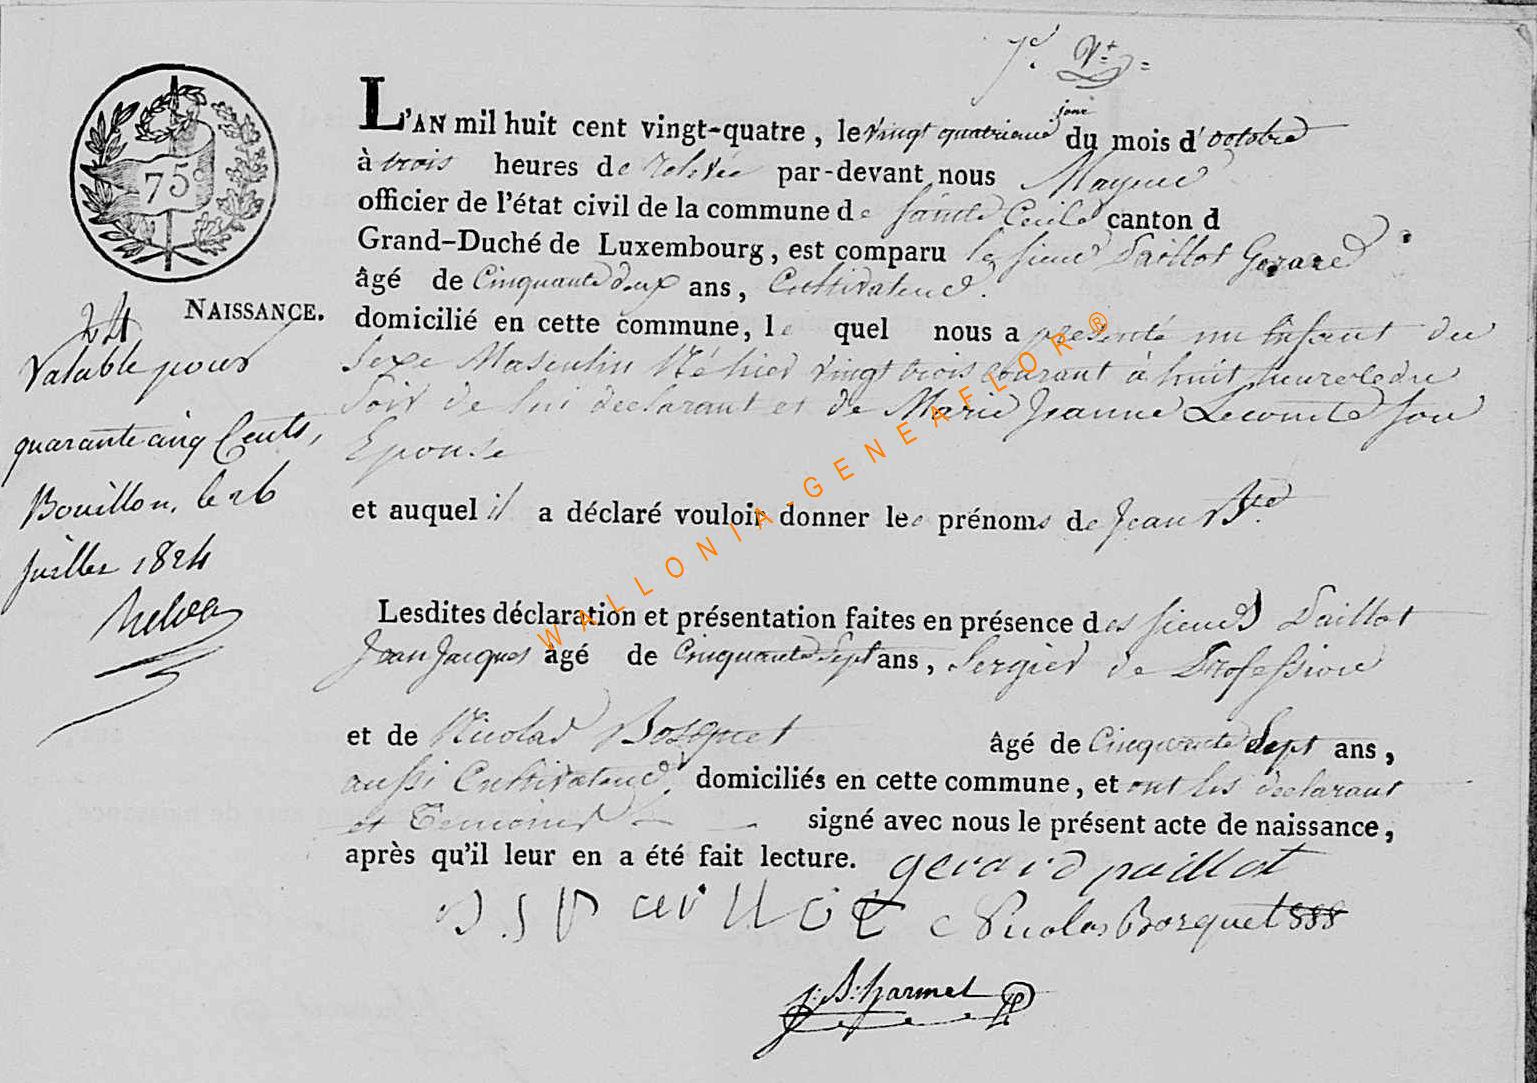 7e. Vt =
75c
L'AN mil huit cent vingt-quatre, le vingt quatrieme jour du mois d'octobre
à trois heures de relevée par-devant nous Mayeur
officier de l'état civil de la commune de sainte Cecile canton d
Grand-Duché de Luxembourg, est comparu le sieur Paillot Gerard
âgé de Cinquante deux ans, Cultivateur.
NAISSANCE.
domicilié en cette commune, le quel nous a presenté un Enfant du
sexe Masculin Né hier vingt trois courant à huit heures du
soir de lui declarant et de Marie Jeanne Lecomte son
Epouse
et auquel il a déclaré vouloir donner les prénoms de Jean Bte
Lesdites déclaration et présentation faites en présence des sieurs Paillot
Jean Jacques âgé de Cinquante sept ans, Sergier de Profession
et de Nicolas Bosquet âgé de Cinquante Sept ans,
aussi Cultivateur, domiciliés en cette commune, et ont les declarant
et Temoins signé avec nous le présent acte de naissance,
après qu'il leur en a été fait lecture. gerard paillot
Nicolas Bozquet
J: B: harmel
24
Valable pour
quarante cinq Cents,
Bouillon, le 26
Juillet 1824
WALLONIA-GENEAFLOR®